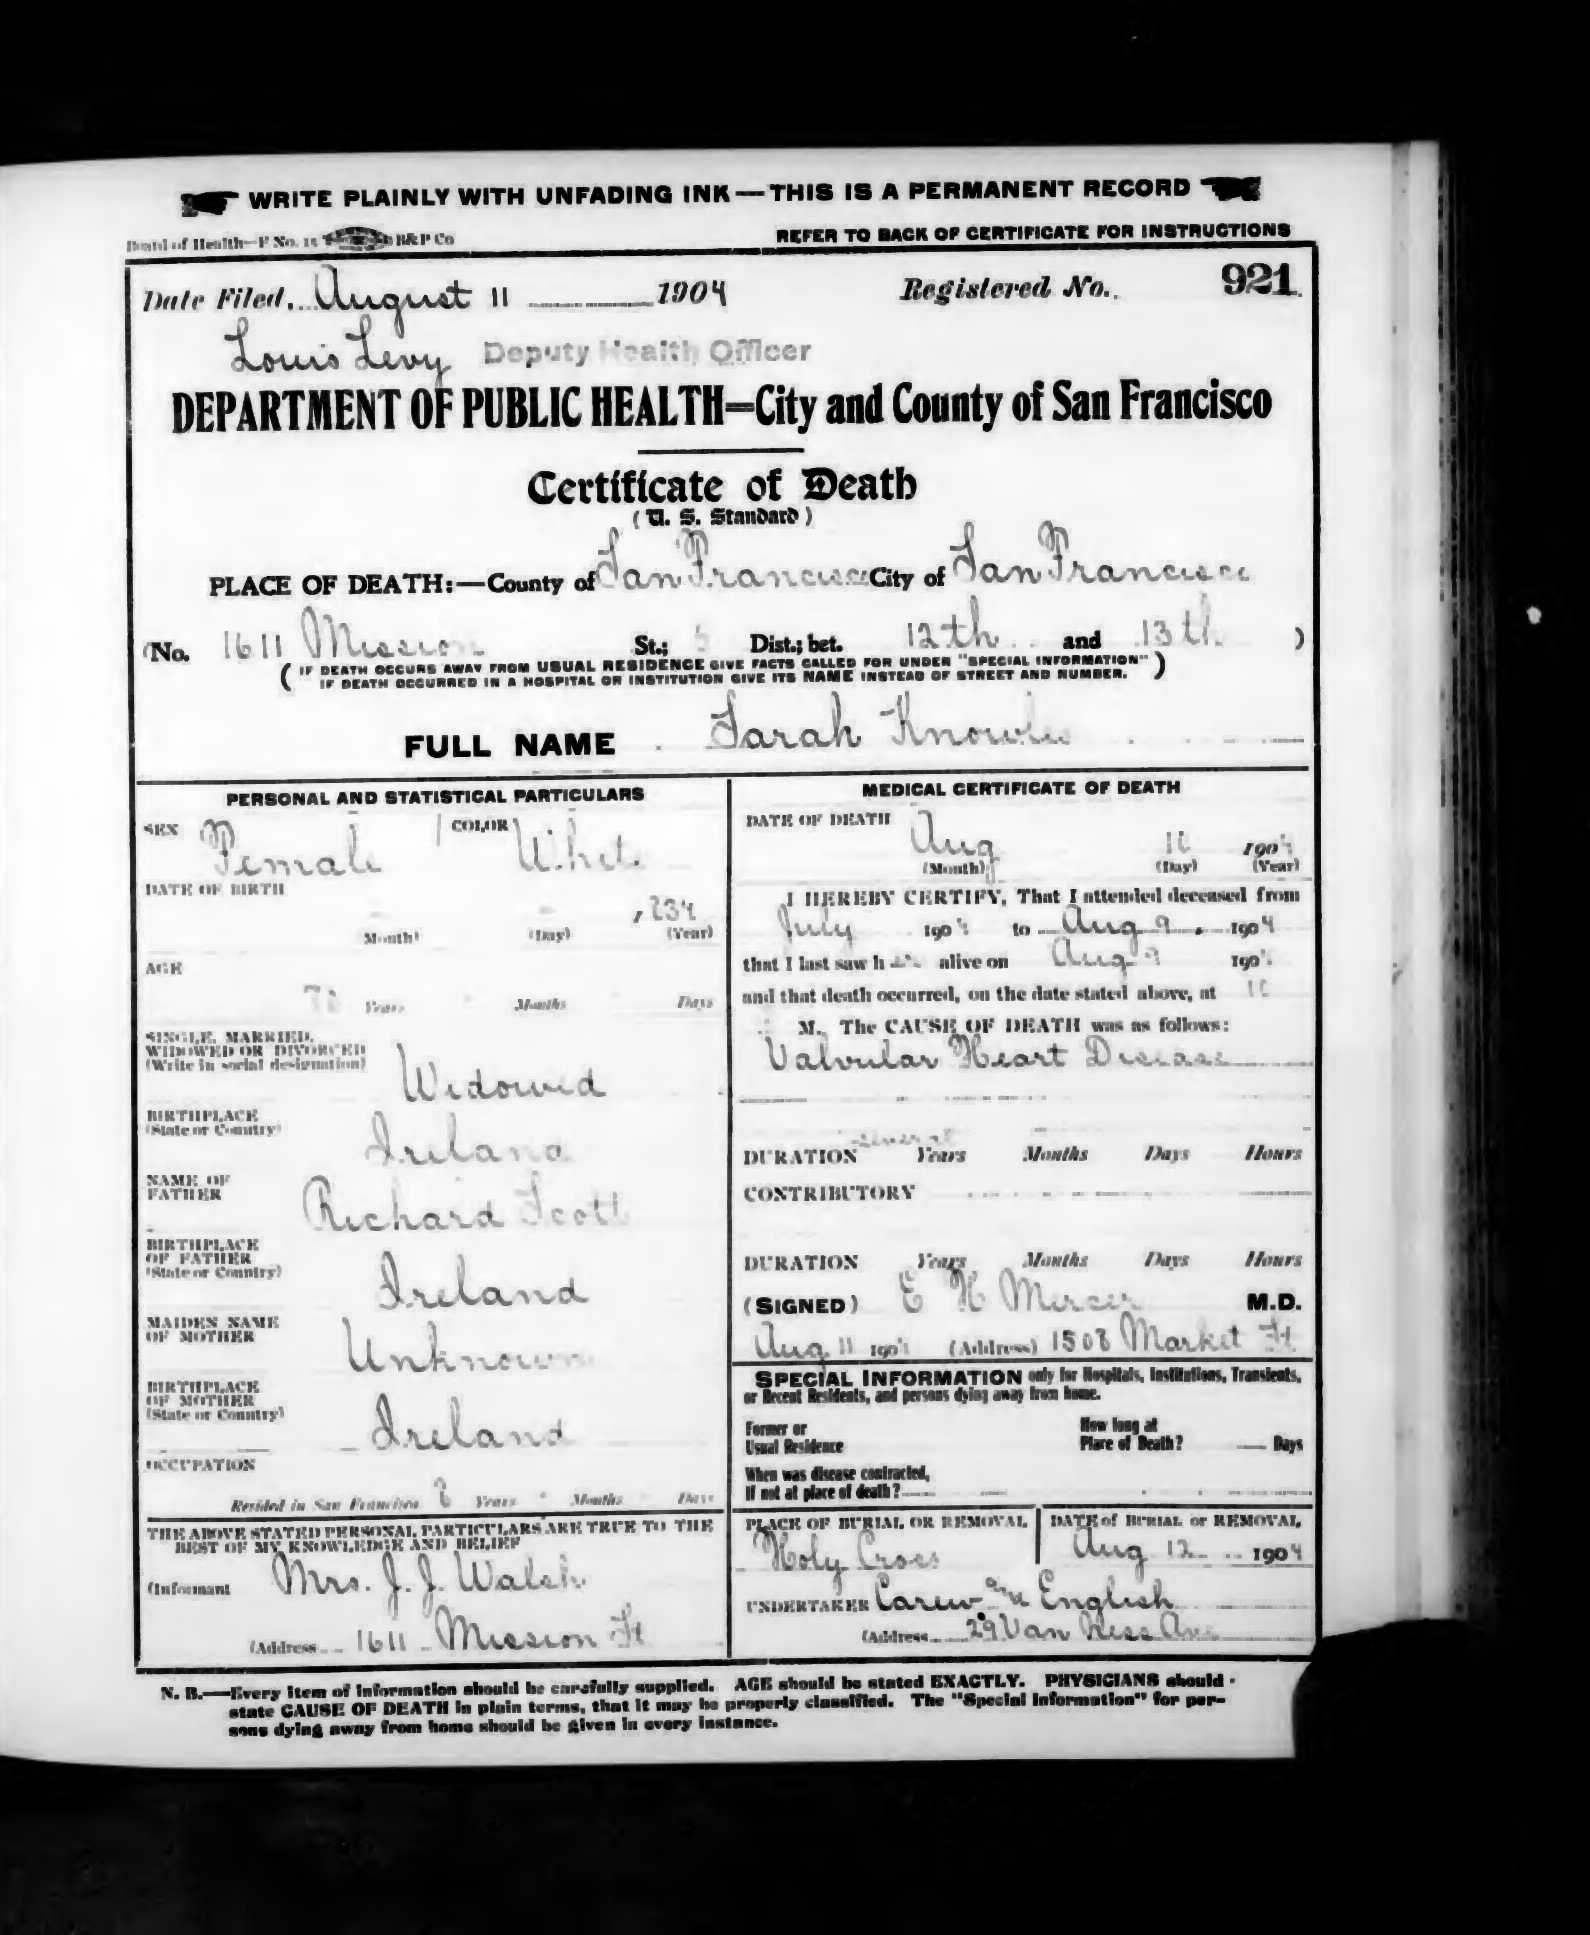 WRITE PLAINLY WITH UNFADING INK — THIS IS A PERMANENT RECORD
Board of Health—F No. 15 B&P Co
REFER TO BACK OF CERTIFICATE FOR INSTRUCTIONS
Date Filed, August 11 1904 Registered No. 921
Louis Levy Deputy Health Officer
DEPARTMENT OF PUBLIC HEALTH=City and County of San Francisco
Certificate of Death
(U. S. Standard)
PLACE OF DEATH:—County of San Francisco City of San Francisco
(No. 1611 Mission St.; 5 Dist.; bet. 12th and 13th )
( IF DEATH OCCURS AWAY FROM USUAL RESIDENCE GIVE FACTS CALLED FOR UNDER "SPECIAL INFORMATION" )
IF DEATH OCCURRED IN A HOSPITAL OR INSTITUTION GIVE ITS NAME INSTEAD OF STREET AND NUMBER.
FULL NAME Sarah Knowles
PERSONAL AND STATISTICAL PARTICULARS
SEX Female COLOR White
DATE OF BIRTH
, 834
(Month) (Day) (Year)
AGE
70 Years Months Days
SINGLE, MARRIED,
WIDOWED OR DIVORCED
(Write in social designation)
Widowed
BIRTHPLACE
(State or Country)
Ireland
NAME OF
FATHER
Richard Scott
BIRTHPLACE
OF FATHER
(State or Country)
Ireland
MAIDEN NAME
OF MOTHER
Unknown
BIRTHPLACE
OF MOTHER
(State or Country)
Ireland
OCCUPATION
Resided in San Francisco Years Months Days
THE ABOVE STATED PERSONAL PARTICULARS ARE TRUE TO THE
BEST OF MY KNOWLEDGE AND BELIEF
(Informant Mrs. J. J. Walsh
(Address 1611 Mission St
MEDICAL CERTIFICATE OF DEATH
DATE OF DEATH
Aug 10 1904
(Month) (Day) (Year)
I HEREBY CERTIFY, That I attended deceased from
July 1904 to Aug 9, 1904
that I last saw h er alive on Aug 9 1904
and that death occurred, on the date stated above, at 10
M. The CAUSE OF DEATH was as follows:
Valvular Heart Disease
DURATION Several Years Months Days Hours
CONTRIBUTORY
DURATION Years Months Days Hours
(SIGNED) E H Mercer M.D.
Aug 11 1904 (Address) 1508 Market St
SPECIAL INFORMATION only for Hospitals, Institutions, Transients,
or Recent Residents, and persons dying away from home.
Former or
Usual Residence
How long at
Place of Death? Days
When was disease contracted,
If not at place of death?
PLACE OF BURIAL OR REMOVAL
Holy Cross
DATE of BURIAL or REMOVAL
Aug 12 1904
UNDERTAKER Carew and English
(Address 29 Van Ness Ave
N. B.—Every item of information should be carefully supplied. AGE should be stated EXACTLY. PHYSICIANS should
state CAUSE OF DEATH in plain terms, that it may be properly classified. The "Special Information" for per-
sons dying away from home should be given in every instance.